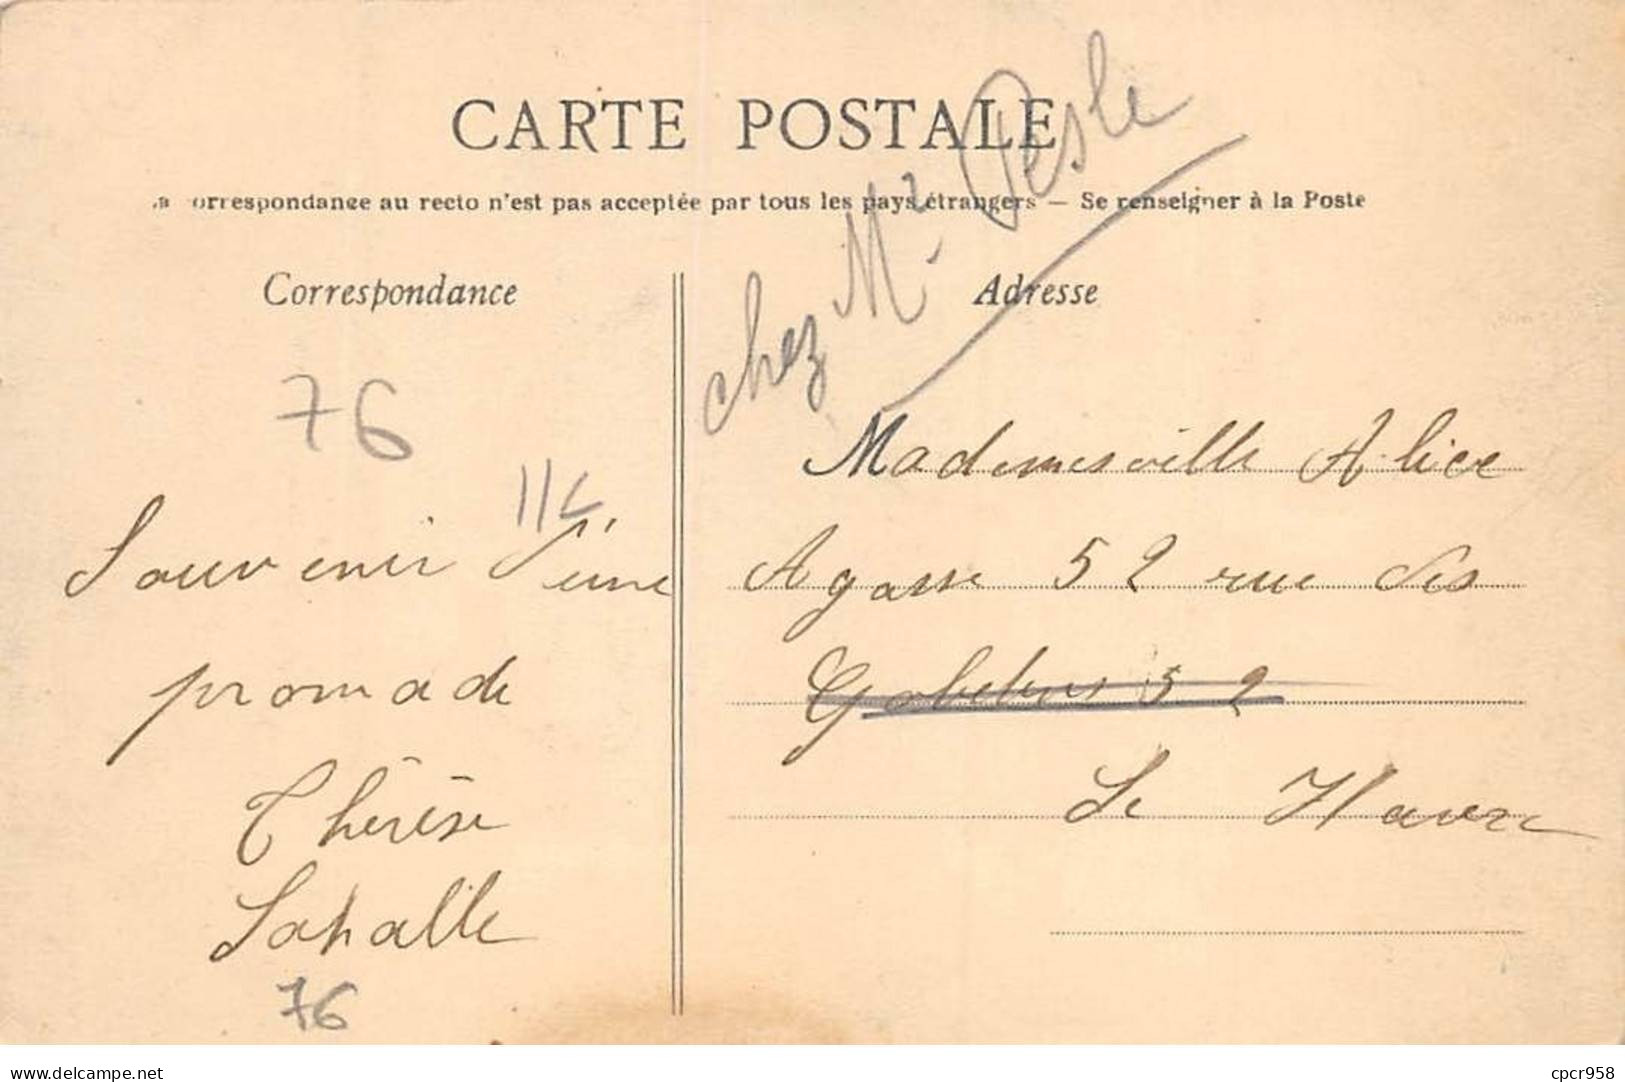 CARTE POSTALE
orrespondance au recto n'est pas acceptée par tous les pays étrangers — Se renseigner à la Poste
chez Mr Pesle
Correspondance
Adresse
76
Souvenir d'une
promade
Thérèse
Lahalle
76
Mademoiselle Alice
Agasse 52 rue des
52
Le Havre
www.delcampe.net
cpcr958